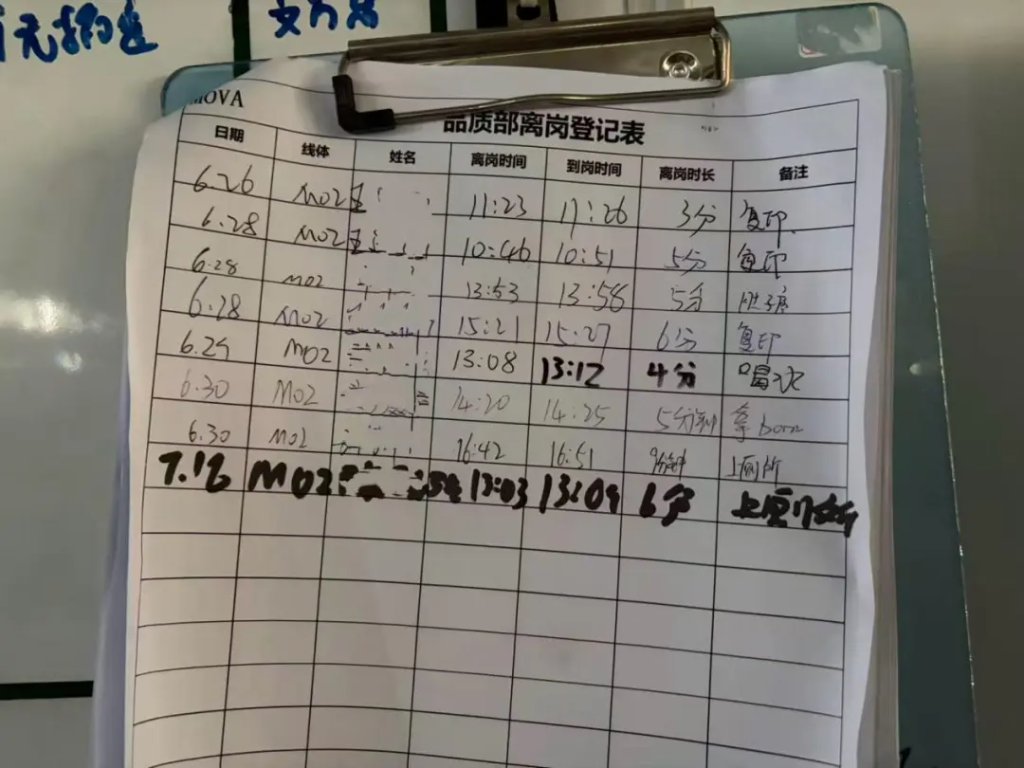 MOVA
品质部离岗登记表
日期 线体 姓名 离岗时间 到岗时间 离岗时长 备注
6.26 M02 11:23 11:26 3分 复印
6.28 M02 10:46 10:51 5分 复印
6.28 M02 13:53 13:58 5分
6.28 M02 15:21 15:27 6分 复印
6.29 M02 13:08 13:12 4分 喝水
6.30 M02 14:20 14:25 5分钟 拿bom
6.30 M02 16:42 16:51 9分钟 上厕所
M02 13:03 13:09 6分